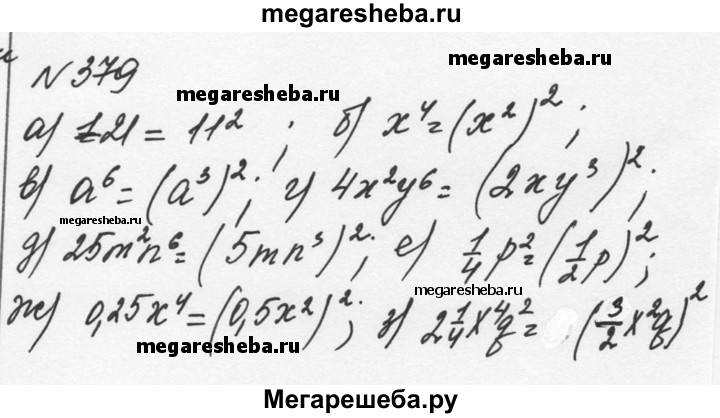 megaresheba.ru
N 379
megaresheba.ru
а) 121 = 11²; б) x⁴ = (x²)²;
в) a⁶ = (a³)²; г) 4x²y⁶ = (2xy³)²;
megaresheba.ru
д) 25m²n⁶ = (5mn³)²; е) 1/4 p² = (1/2 p)²;
megaresheba.ru
ж) 0,25x⁴ = (0,5x²)²; з) 2 1/4 x⁴q² = (3/2 x²q)²
megaresheba.ru
Мегарешеба.ру